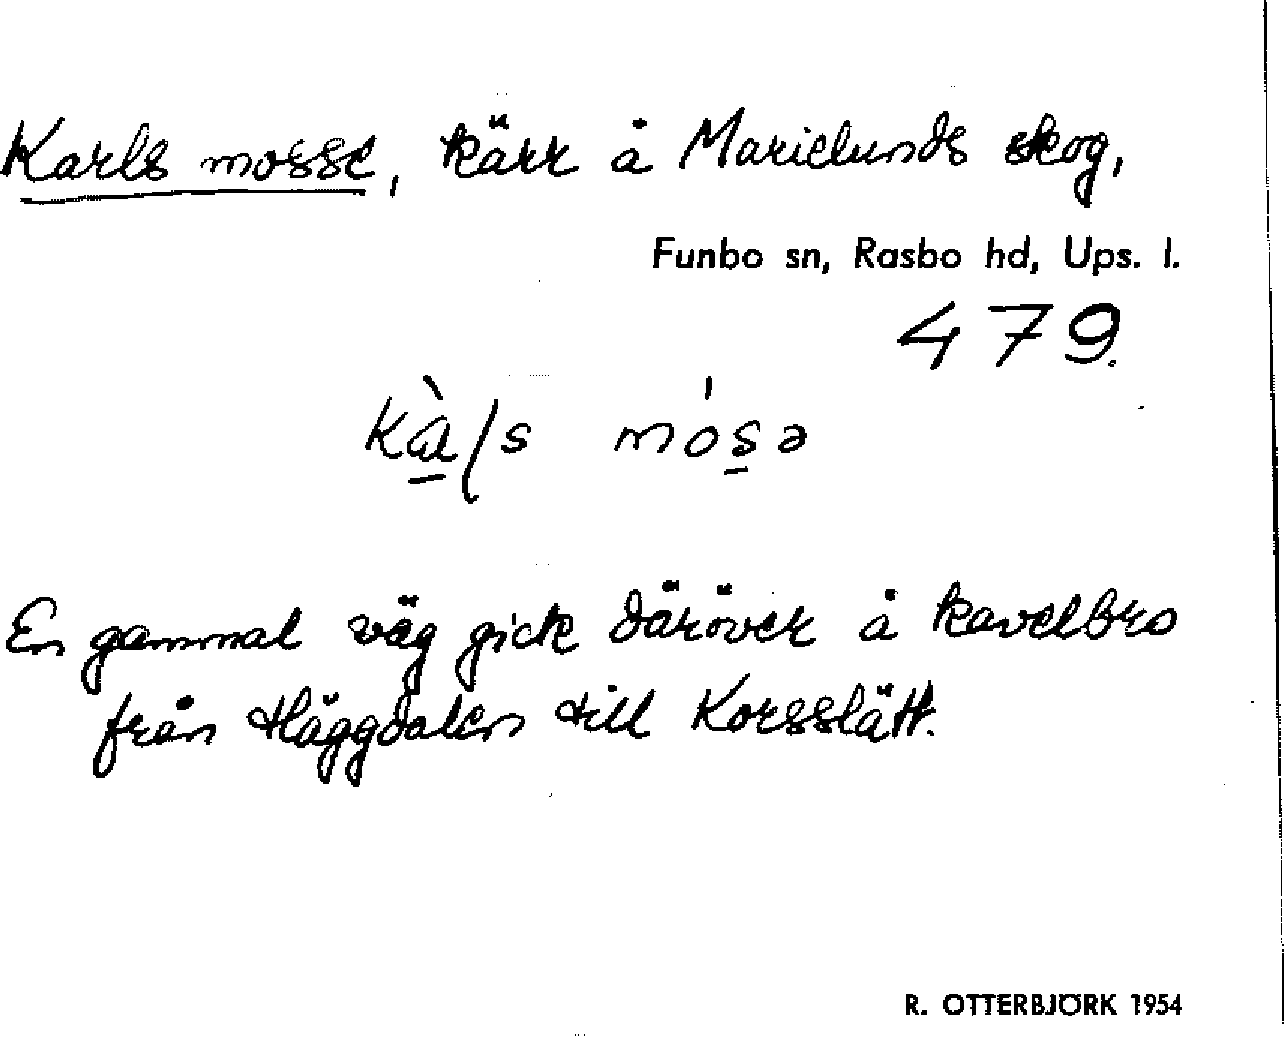 Karls mosse, kärr å Marielunds skog,
Funbo sn, Rasbo hd, Ups. l.
479.
kàls mósə
En gammal väg gick däröver å kavelbro
från Häggdalen till Korsslätt.
R. OTTERBJÖRK 1954